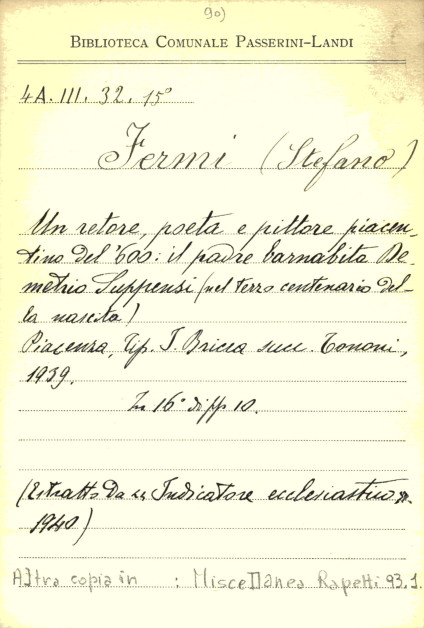 90)
BIBLIOTECA COMUNALE PASSERINI-LANDI
4A. III. 32. 15°
Fermi (Stefano)
Un retore, poeta e pittore piacen-
tino del '600: il padre barnabita De-
metrio Suppensi (nel terzo centenario del-
la nascita)
Piacenza, Tip. Bricca succ. Tononi,
1939.
In 16° di pp 10.
(Estratto da Indicatore ecclesiastico
1940)
Altra copia in : Miscellanea Rapetti 93.1.